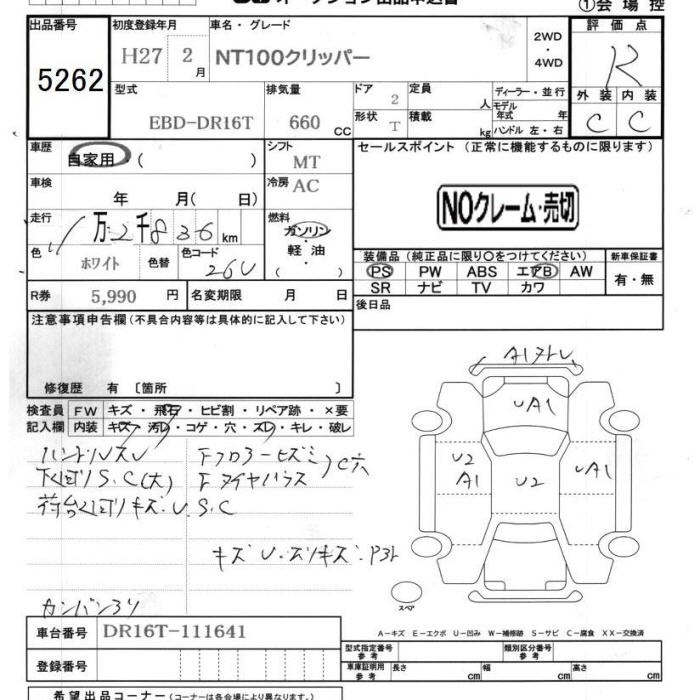 ①会場控
出品番号 初度登録年月 車名・グレード 評価点
5262 H27 2月 NT100クリッパー 2WD・4WD R
型式 排気量 ドア 定員 ディーラー・並行 外装 内装
EBD-DR16T 660 CC 2 人 モデル年式 年 C C
形状 T 積載 kg ハンドル 左・右
車歴 自家用・( ) シフト MT セールスポイント(正常に機能するものに限ります)
車検 年 月( 日) 冷房 AC
NOクレーム・売切
走行 1万2千836km 燃料 ガソリン・軽油・( )
色 ホワイト 色替 色コード 26U
装備品(純正品に限り○をつけてください) 新車保証書
PS PW ABS エアB AW 有・無
SR ナビ TV カワ
R券 5,990円 名変期限 月 日 後日品
注意事項申告欄(不具合内容等は具体的に記入して下さい)
修復歴 有 〔箇所 〕
検査員記入欄 FW キズ・飛石・ヒビ割・リペア跡・×要
内装 キズ・汚レ・コゲ・穴・スレ・キレ・破レ
ハンドルスレ
下廻りS.C(大)
荷台廻りキズ.U.S.C
キズU.スリキズ.
カンバン
UA1
U2
A1
U2
UA1
スペア
A-キズ E-エクボ U-凹み W-補修跡 S-サビ C-腐食 XX-交換済
車台番号 DR16T-111641
型式指定番号 参考 類別区分番号 参考
登録番号
車庫証明用 参考 長さ cm 幅 cm 高さ cm
希望出品コーナー(コーナーは各会場により異なります。)